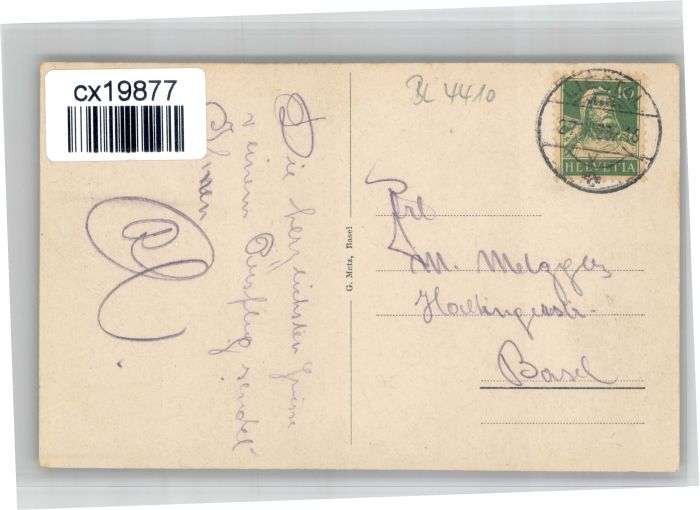 cx19877
BL 4410
10
HELVETIA
Die herzlichsten Grüsse
v. einem Ausflug sendet
Ihnen
G. Metz, Basel
Frl
M. Metzger
Haltingerstr.
Basel